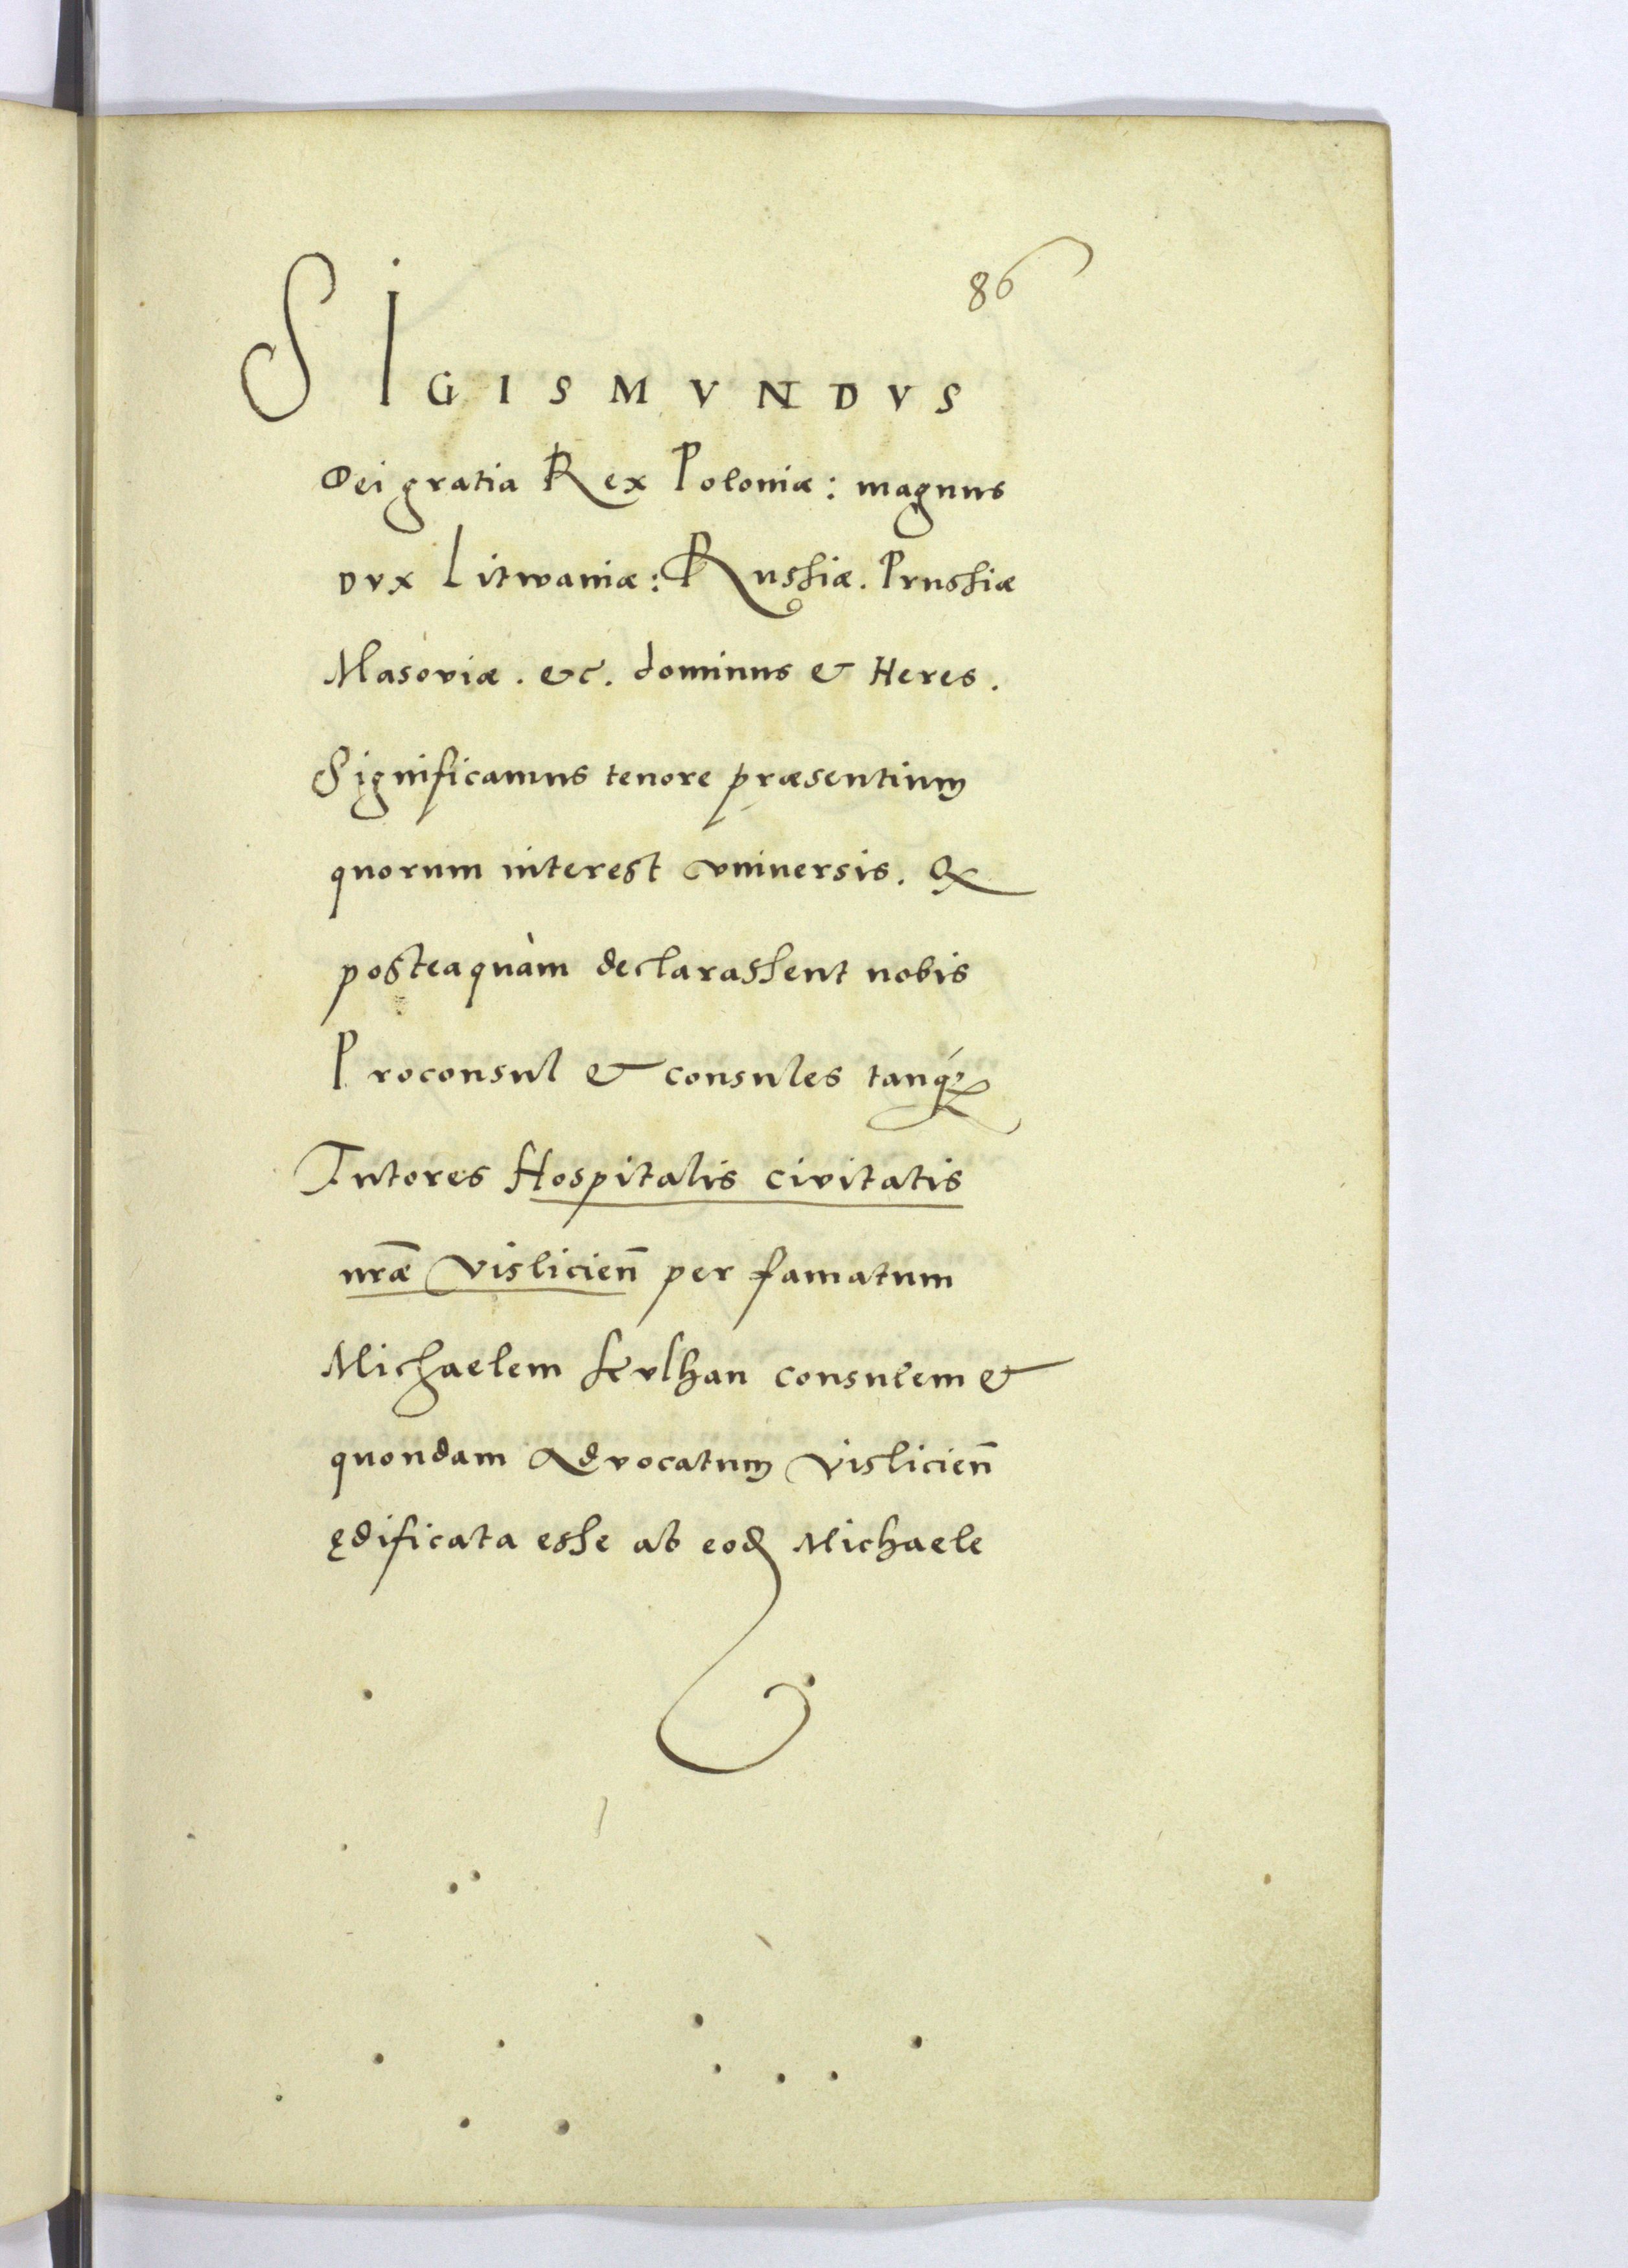 86
SIGISMVNDVS
Dei gratia Rex Poloniæ: magnus
DVX Litwaniæ: Russiæ. Prussiæ
Masoviæ. &c. dominus & Heres.
Significamus tenore præsentium
quorum interest vniuersis. Q
posteaquàm declarassent nobis
Proconsul & consules tanq́
Tutores Hospitalis civitatis
nr̃æ Vislicien̄ per famatum
Michaelem consulem &
quondam Advocatum Vislicien̄
ędificata esse ab eod Michaele